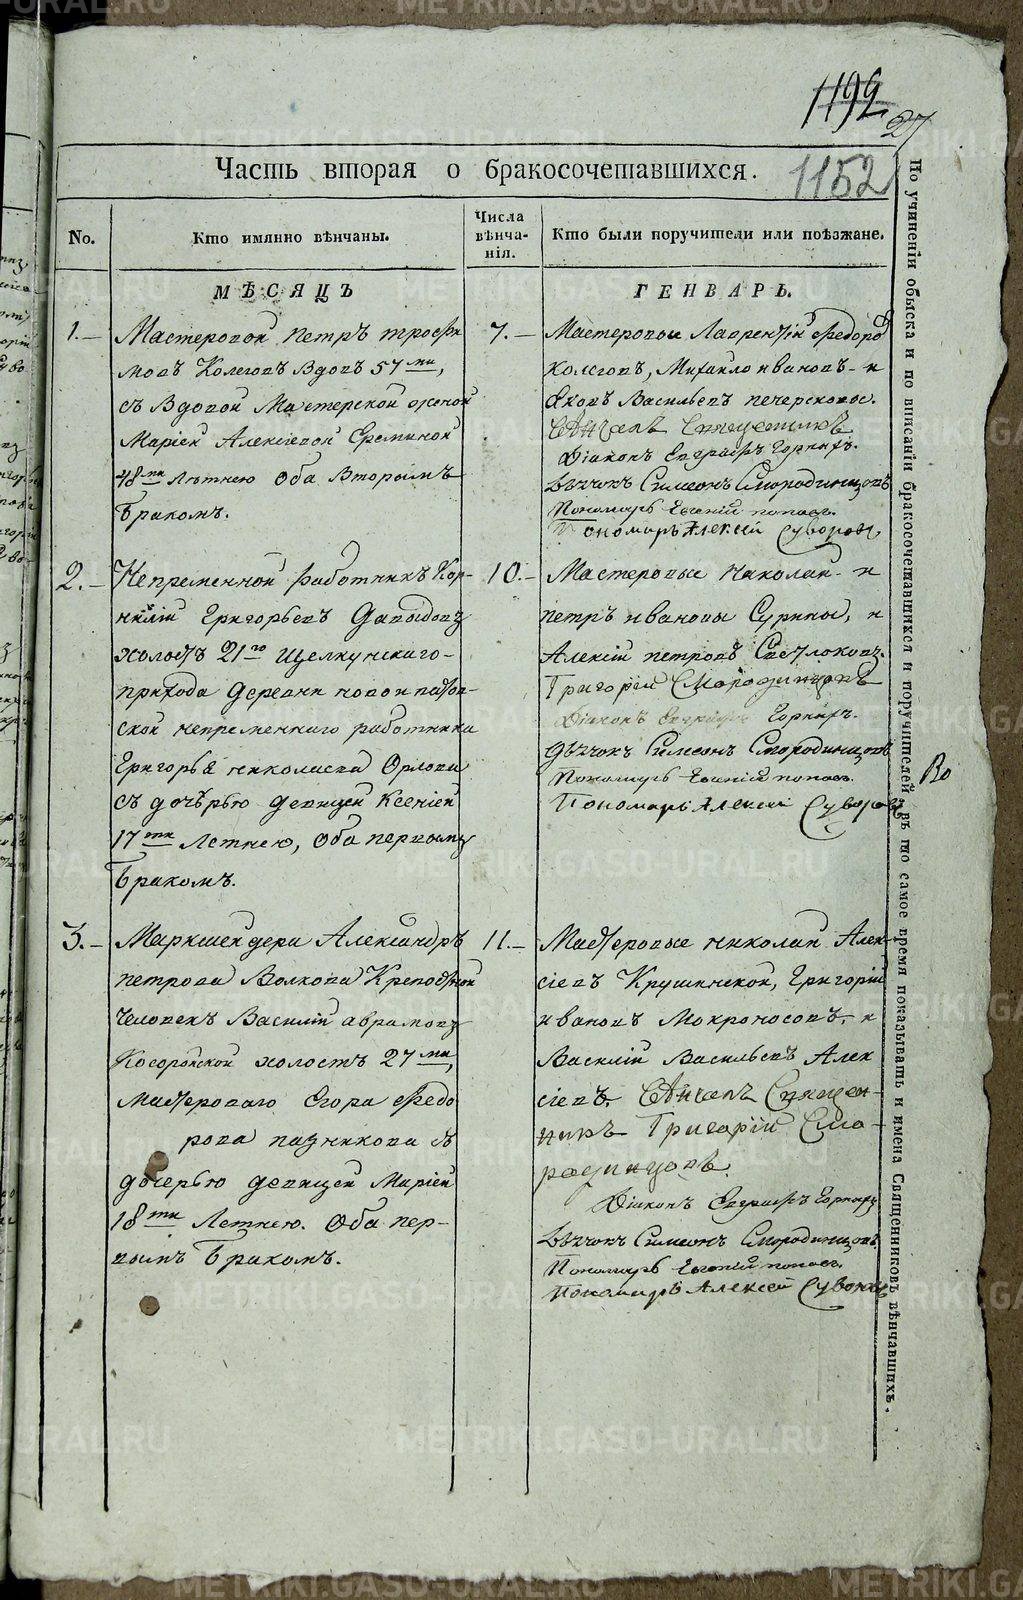 1192
27
1152
Часть вторая о бракосочетавшихся.
No.
Кто имянно вѣнчаны.
Числа вѣнча-нія.
Кто были поручители или поѣзжане.
МѢСЯЦЪ
ГЕНВАРЬ.
1.–
Мастеровой петръ трофи
мовъ Колеговъ Вдовъ 57ми,
съ Вдовой Мастерской женой
Маріей Алексіевой Ереминой
48ми Лѣтнею Оба Вторымъ
Бракомъ.
7.–
Мастеровые Лаврентій Федоров
Колеговъ, Михайло ивановъ- и
Яковъ Васильевъ печерсковы.
Діаконъ Евграфъ Горныхъ.
Дьячокъ Симеонъ Смородинцовъ
Пономарь Евгеній поповъ.
Пономарь Алексей Суворовъ
2.–
Непременной работникъ Кор-
нилій Григорьевъ Давыдовъ
холостъ 21го Щелкунскаго-
прихода Деревни новоипатов-
ской непременнаго работника
Григорья николаева Орлова
съ дочѣрью девицей Ксеніей
17ти Летнею, Оба первымъ
Бракомъ.
10.–
Мастеровые николай- и
петръ ивановы Сурины, и
Алексій петровъ Светлоковъ.
Григорій Смородинцовъ
Діаконъ Евграфъ Горныхъ.
Дьячокъ Симеонъ Смородинцовъ
Пономарь Евгеній поповъ.
Пономарь Алексей Суворовъ
Во
3.–
Маркшейдера Александръ
петрова Волкова Крепостной
Человекъ Василій аврамовъ
Косоройской холостъ 27ми,
Мастероваго Егора Федо
рова пазникова съ
дочерью девицей Маріей
18ти Летнею. Оба пер-
вымъ Бракомъ.
11.–
Мастеровые николай Алек-
сіевъ Крушинской, Григорій
ивановъ Мокроносовъ, и
Василій Васильевъ Алек
сіевъ. Вѣнчалъ Священ-
никъ Григорій Смо-
родинцовъ.
Діаконъ Евграфъ Горныхъ
Дьячокъ Симеонъ Смородинцовъ
Пономарь Евгеній поповъ.
Пономарь Алексей Суворовъ
По учиненіи обыска и по вписаніи бракосочетавшихся и поручителей въ то самое время показывать и имена Священниковъ вѣнчавшихъ.
METRIKI.GASO-URAL.RU